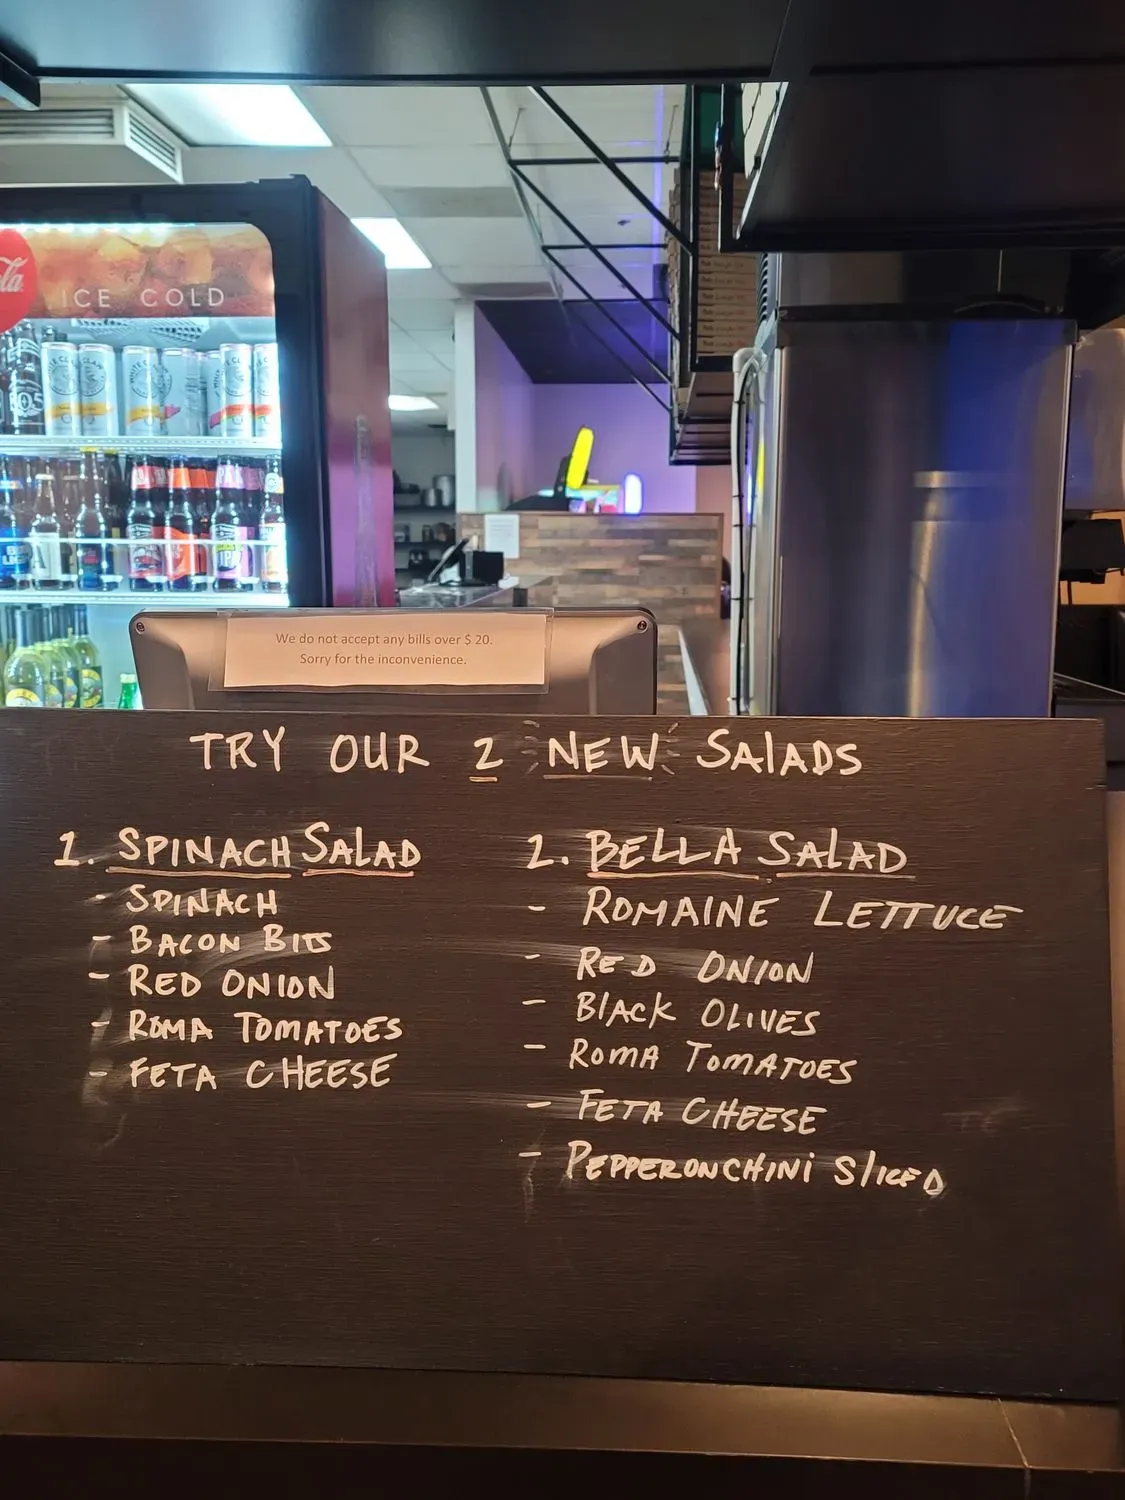 ICE COLD
We do not accept any bills over $ 20.
Sorry for the inconvenience.
TRY OUR 2 NEW SALADS
1. SPINACH SALAD
- SPINACH
- BACON BITS
- RED ONION
- ROMA TOMATOES
- FETA CHEESE
2. BELLA SALAD
- ROMAINE LETTUCE
- RED ONION
- BLACK OLIVES
- ROMA TOMATOES
- FETA CHEESE
- PEPPERONCHINI SLICED